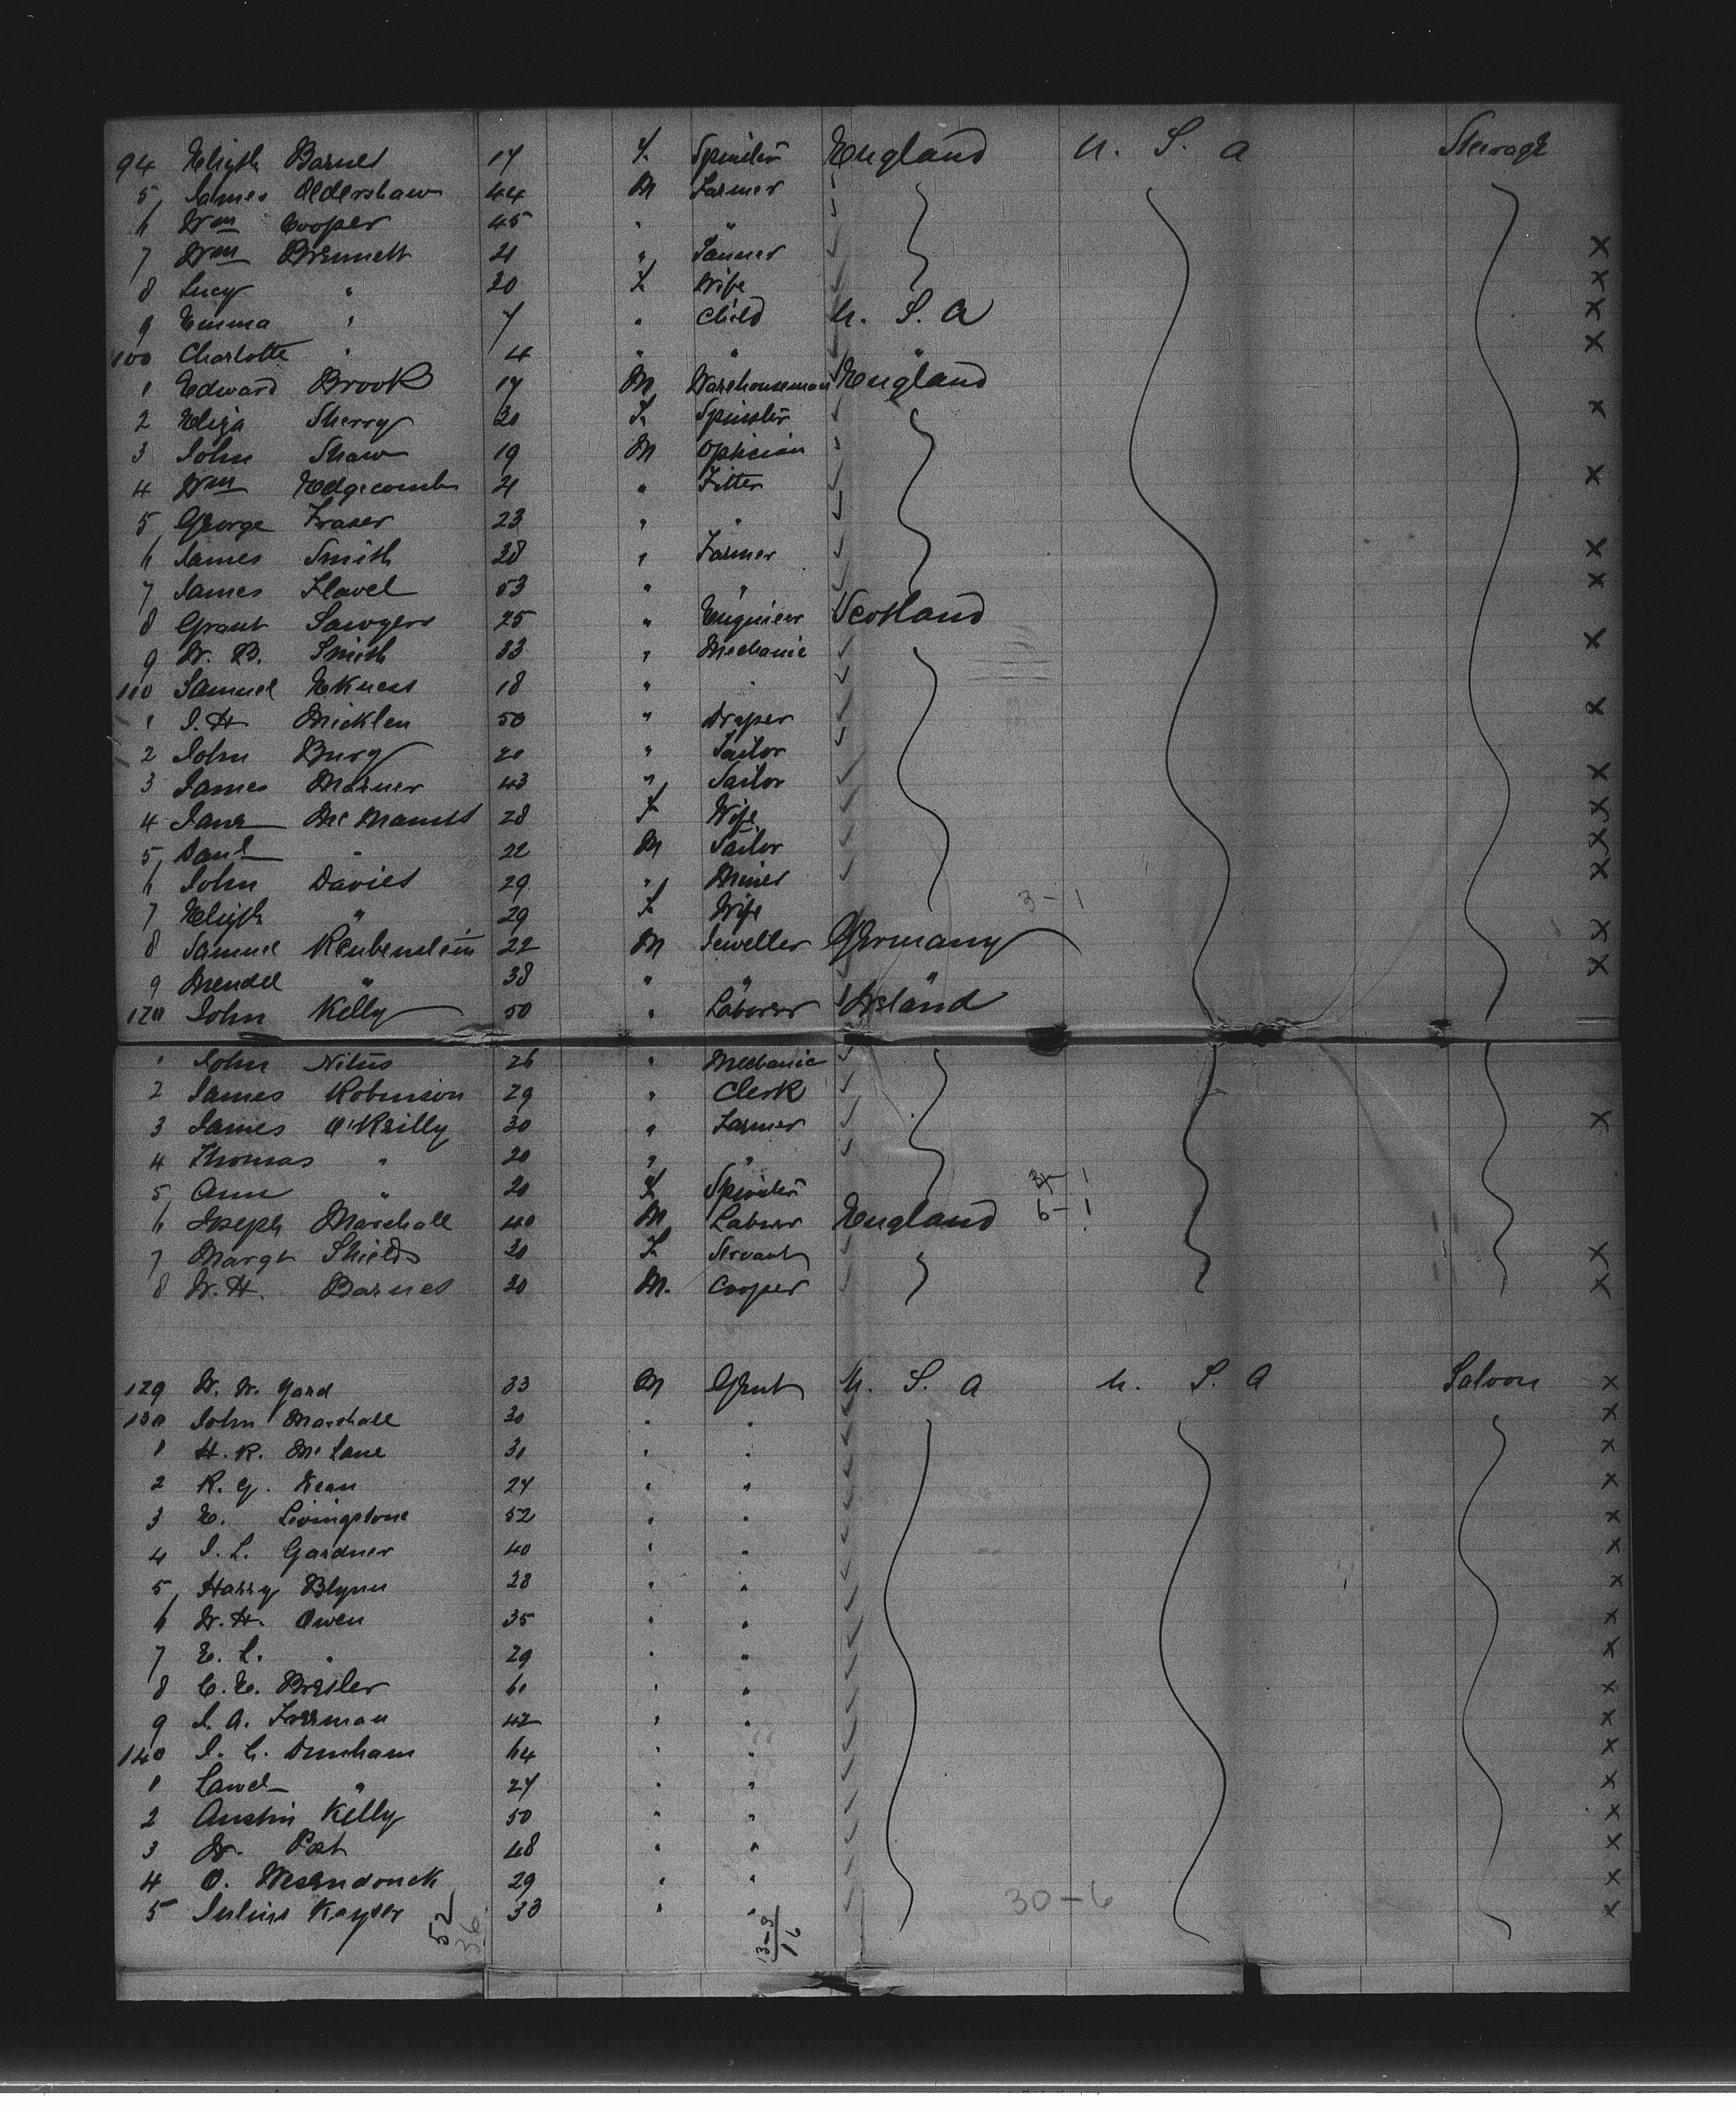 94 Elizth Barnes 17 F. Spinster England U. S. A Steerage
5 James Oldershaw 44 M Farmer
6 Wm Cooper 45 " "
7 Wm Brennett 21 " Tanner X
8 Lucy " 20 F Wife X
9 Emma " 7 " Child U. S. A X
100 Charlotte " 4 " " " X
1 Edward Brook 17 M Warehouseman England
2 Eliza Sherry 20 F. Spinster X
3 John Shaw 19 M Optician
4 Wm Edgecomb 21 " Fitter X
5 George Fraser 23 " "
6 James Smith 38 " Farmer X
7 James Flavel 53 " " X
8 Grant Sawyers 25 " Engineer Scotland
9 W. B. Smith 33 " Mechanic X
110 Samuel Ekness 18 " "
1 J. H Micklen 50 " Draper X
2 John Burg " Tailor
3 James Marner 43 " Sailor X
4 Jane 28 F Wife X
5 " 22 M Sailor X
6 John Davies 29 " Miner X
7 Elizth " 29 F Wife 3-1
8 Samuel Reubenstein 22 M Jeweller Germany X
9 Mendel " 38 " " " X
120 John Kelly 50 " Laborer Ireland
1 John Nitus 26 " Mechanic
2 James Robinson 29 " Clerk
3 James O'Reilly 30 " Farmer X
4 Thomas " 20 " "
5 Ann " 20 F Spinster
6 Joseph Marshall 40 M Laborer England 6-1
7 Margt Shields 20 F Servant X
8 W. H. Barnes 30 M. Cooper X
129 W. W. Yard 33 M Gent U. S. A U. S. A Saloon X
130 John Marshall 30 " " X
1 H. R. McLane 31 " " X
2 R. G. Kean 24 " " X
3 E. Livingstone 52 " " X
4 J. L. Gardner 40 " " X
5 Harry Blynn 28 " " X
6 W. H. Owen 35 " " X
7 E. L. " 29 " " X
8 C. E. Bresler 61 " " X
9 J. A. Freeman 42 " " X
140 J. C. Dunham 64 " " X
1 " 24 " " X
2 Austin Kelly 50 " " X
3 W. Post 48 " " X
4 O. Wesendonck 29 " " X
5 Julius Kayser 33 " " 30-6 X
52
36